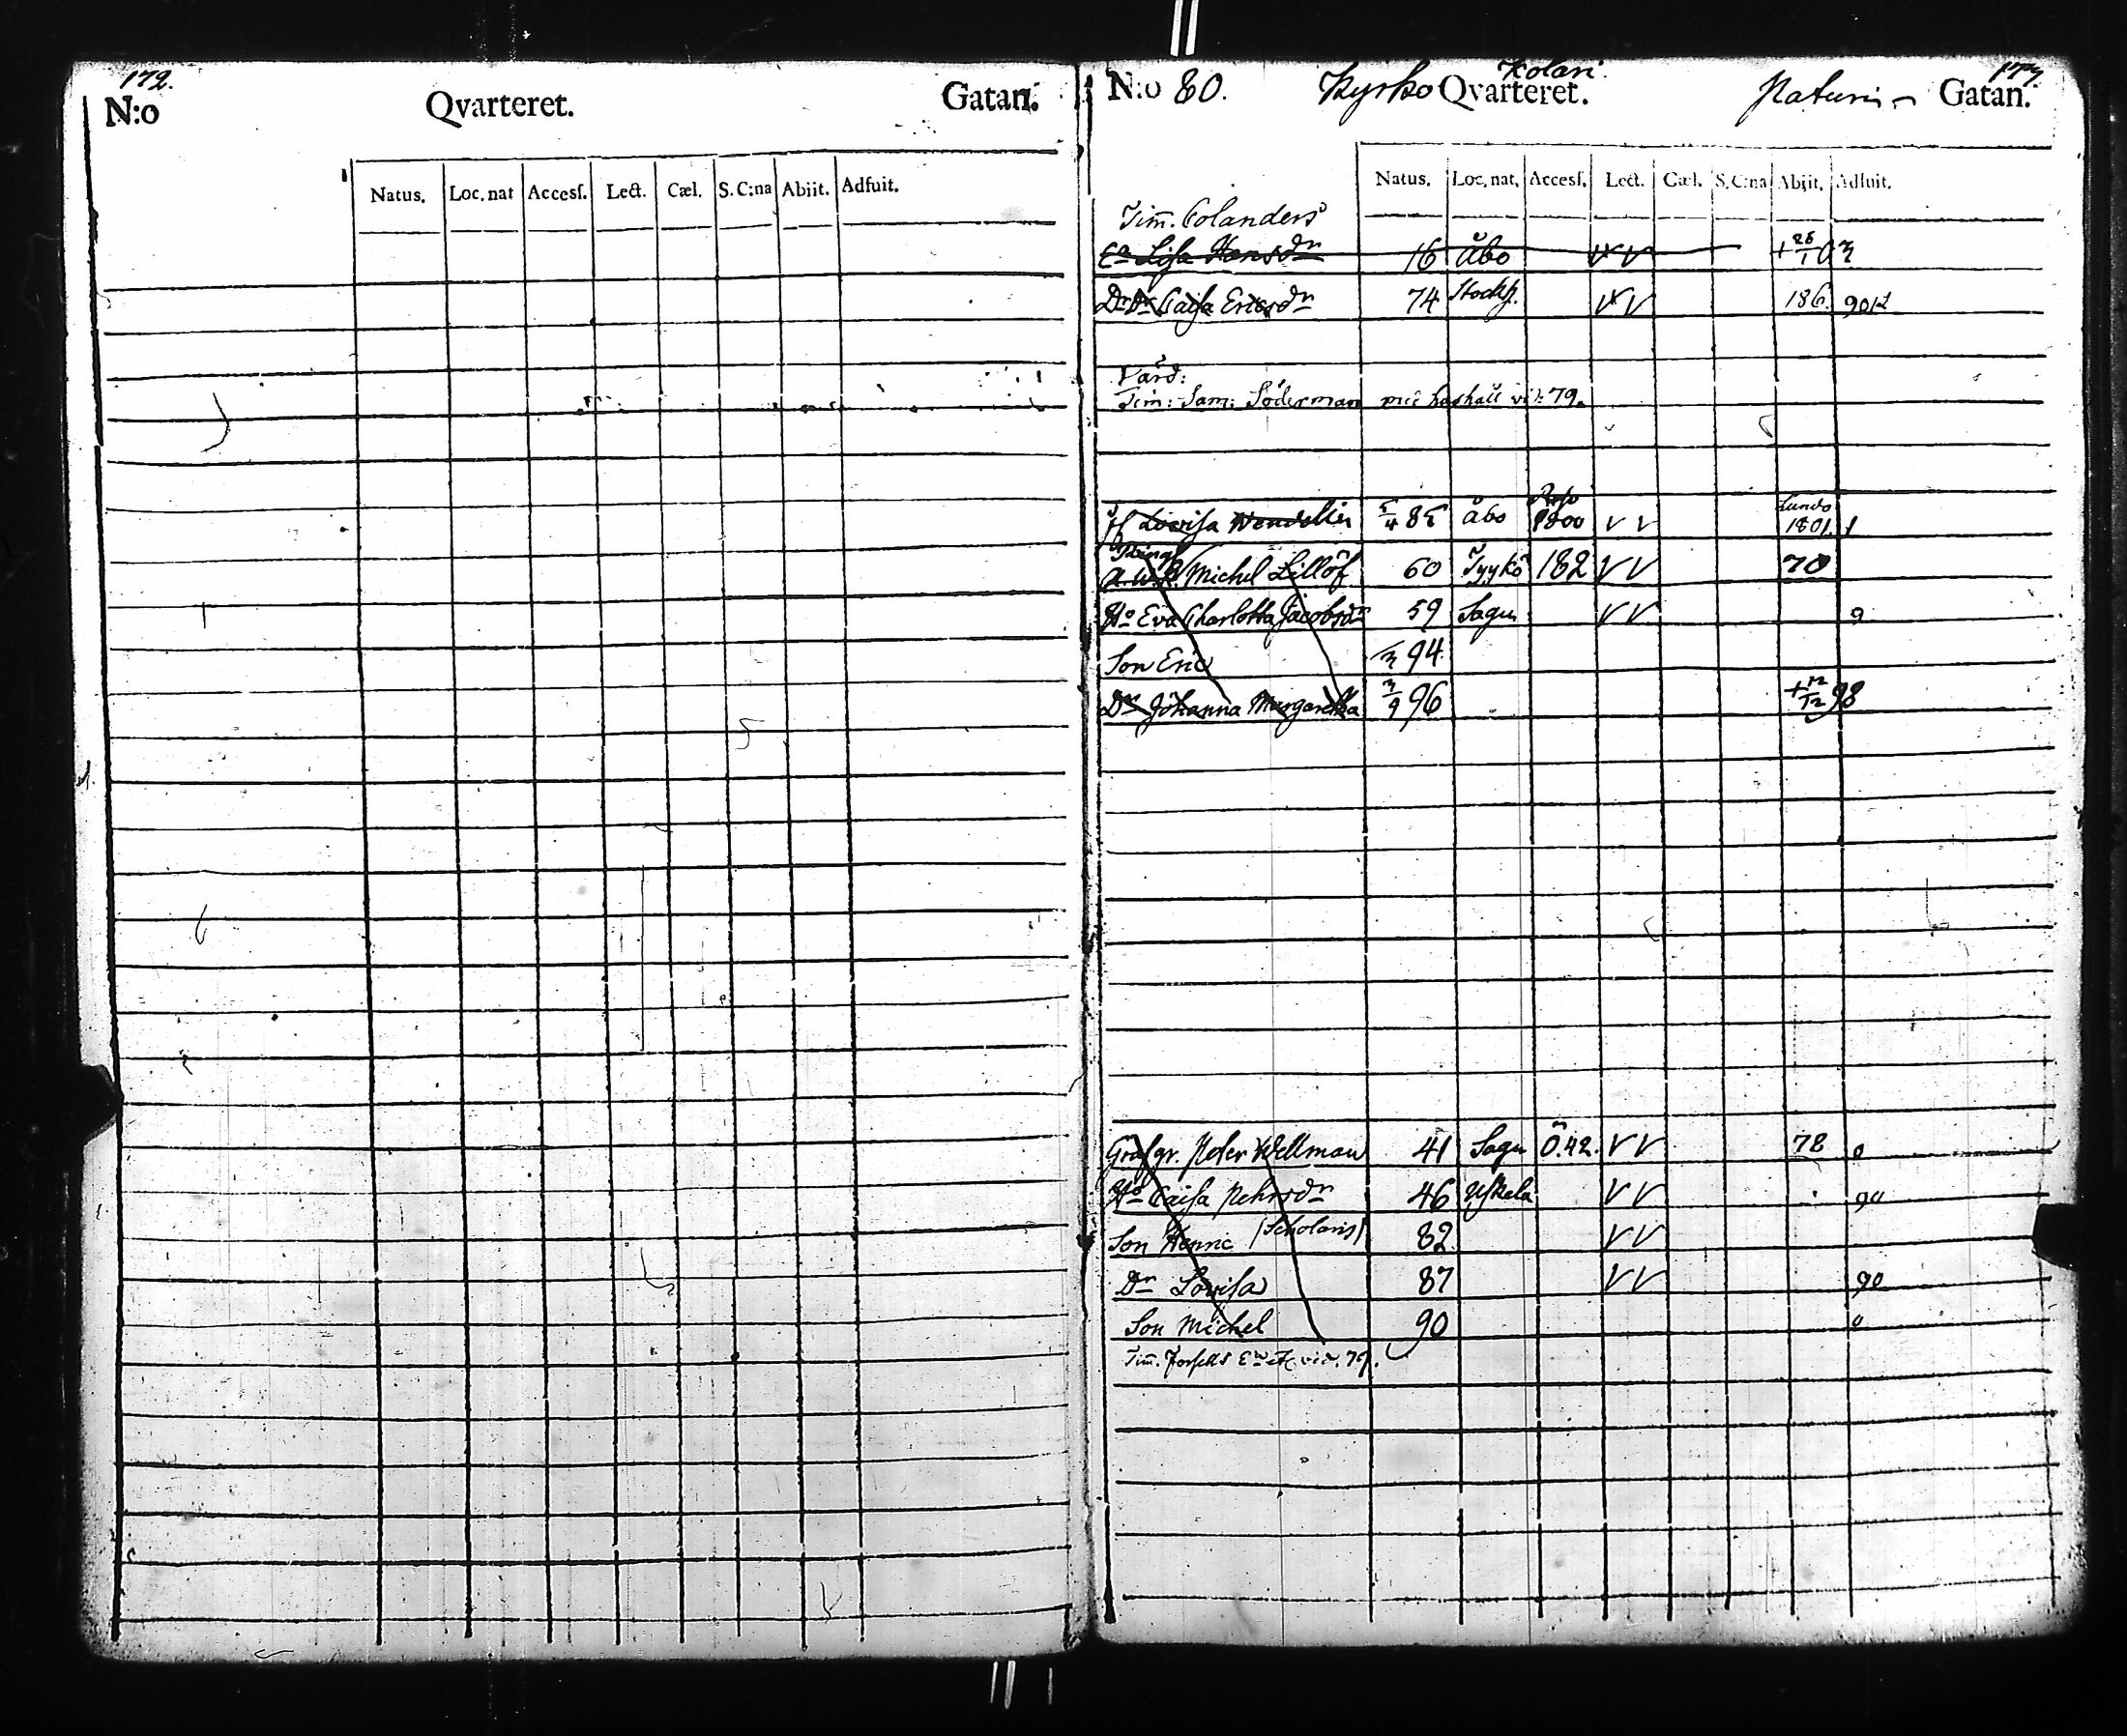 172.
N:o Qvarteret. Gatan.
Natus. Loc. nat Accesſ. Lect. Cæl. S. C:na Abiit. Adfuit.
173.
Kolari.
N:o 80. Kyrko Qvarteret. Gatan.
Natus. Loc. nat. Accesſ. Lect. Cæl. S. C:na Abiit. Adfuit.
Tim. Colanders
Ea Lisa Hansdr 16 Åbo V V + 28/1 03
Dr Dr Caisa Ericsdr 74 Stockh. V V 186. 90
Värd:
Tim: Sam: Söderman med vid: 79.
Lovisa 5/4 85 Åbo 1800 V V Lundo 1801. 1
Michel Lillöf 60 Tyykö 182 V V 70
Ho Eva Charlotta Jacobsdr 59 Sagu V V 0
Son Eric 94.
Dr Johanna Margaretha 3/9 96 + 12/12 98
Peter Wellman 41 Sagu Ö. 42. V V 78 0
Ho Caisa Pehrsdr 46 Uskela V V 90
Son Henric (Scholaris) 82 V V
Dr Lovisa 87 V V 90
Son Michel 90 0
Tim. Forsells Ea vid. 79.